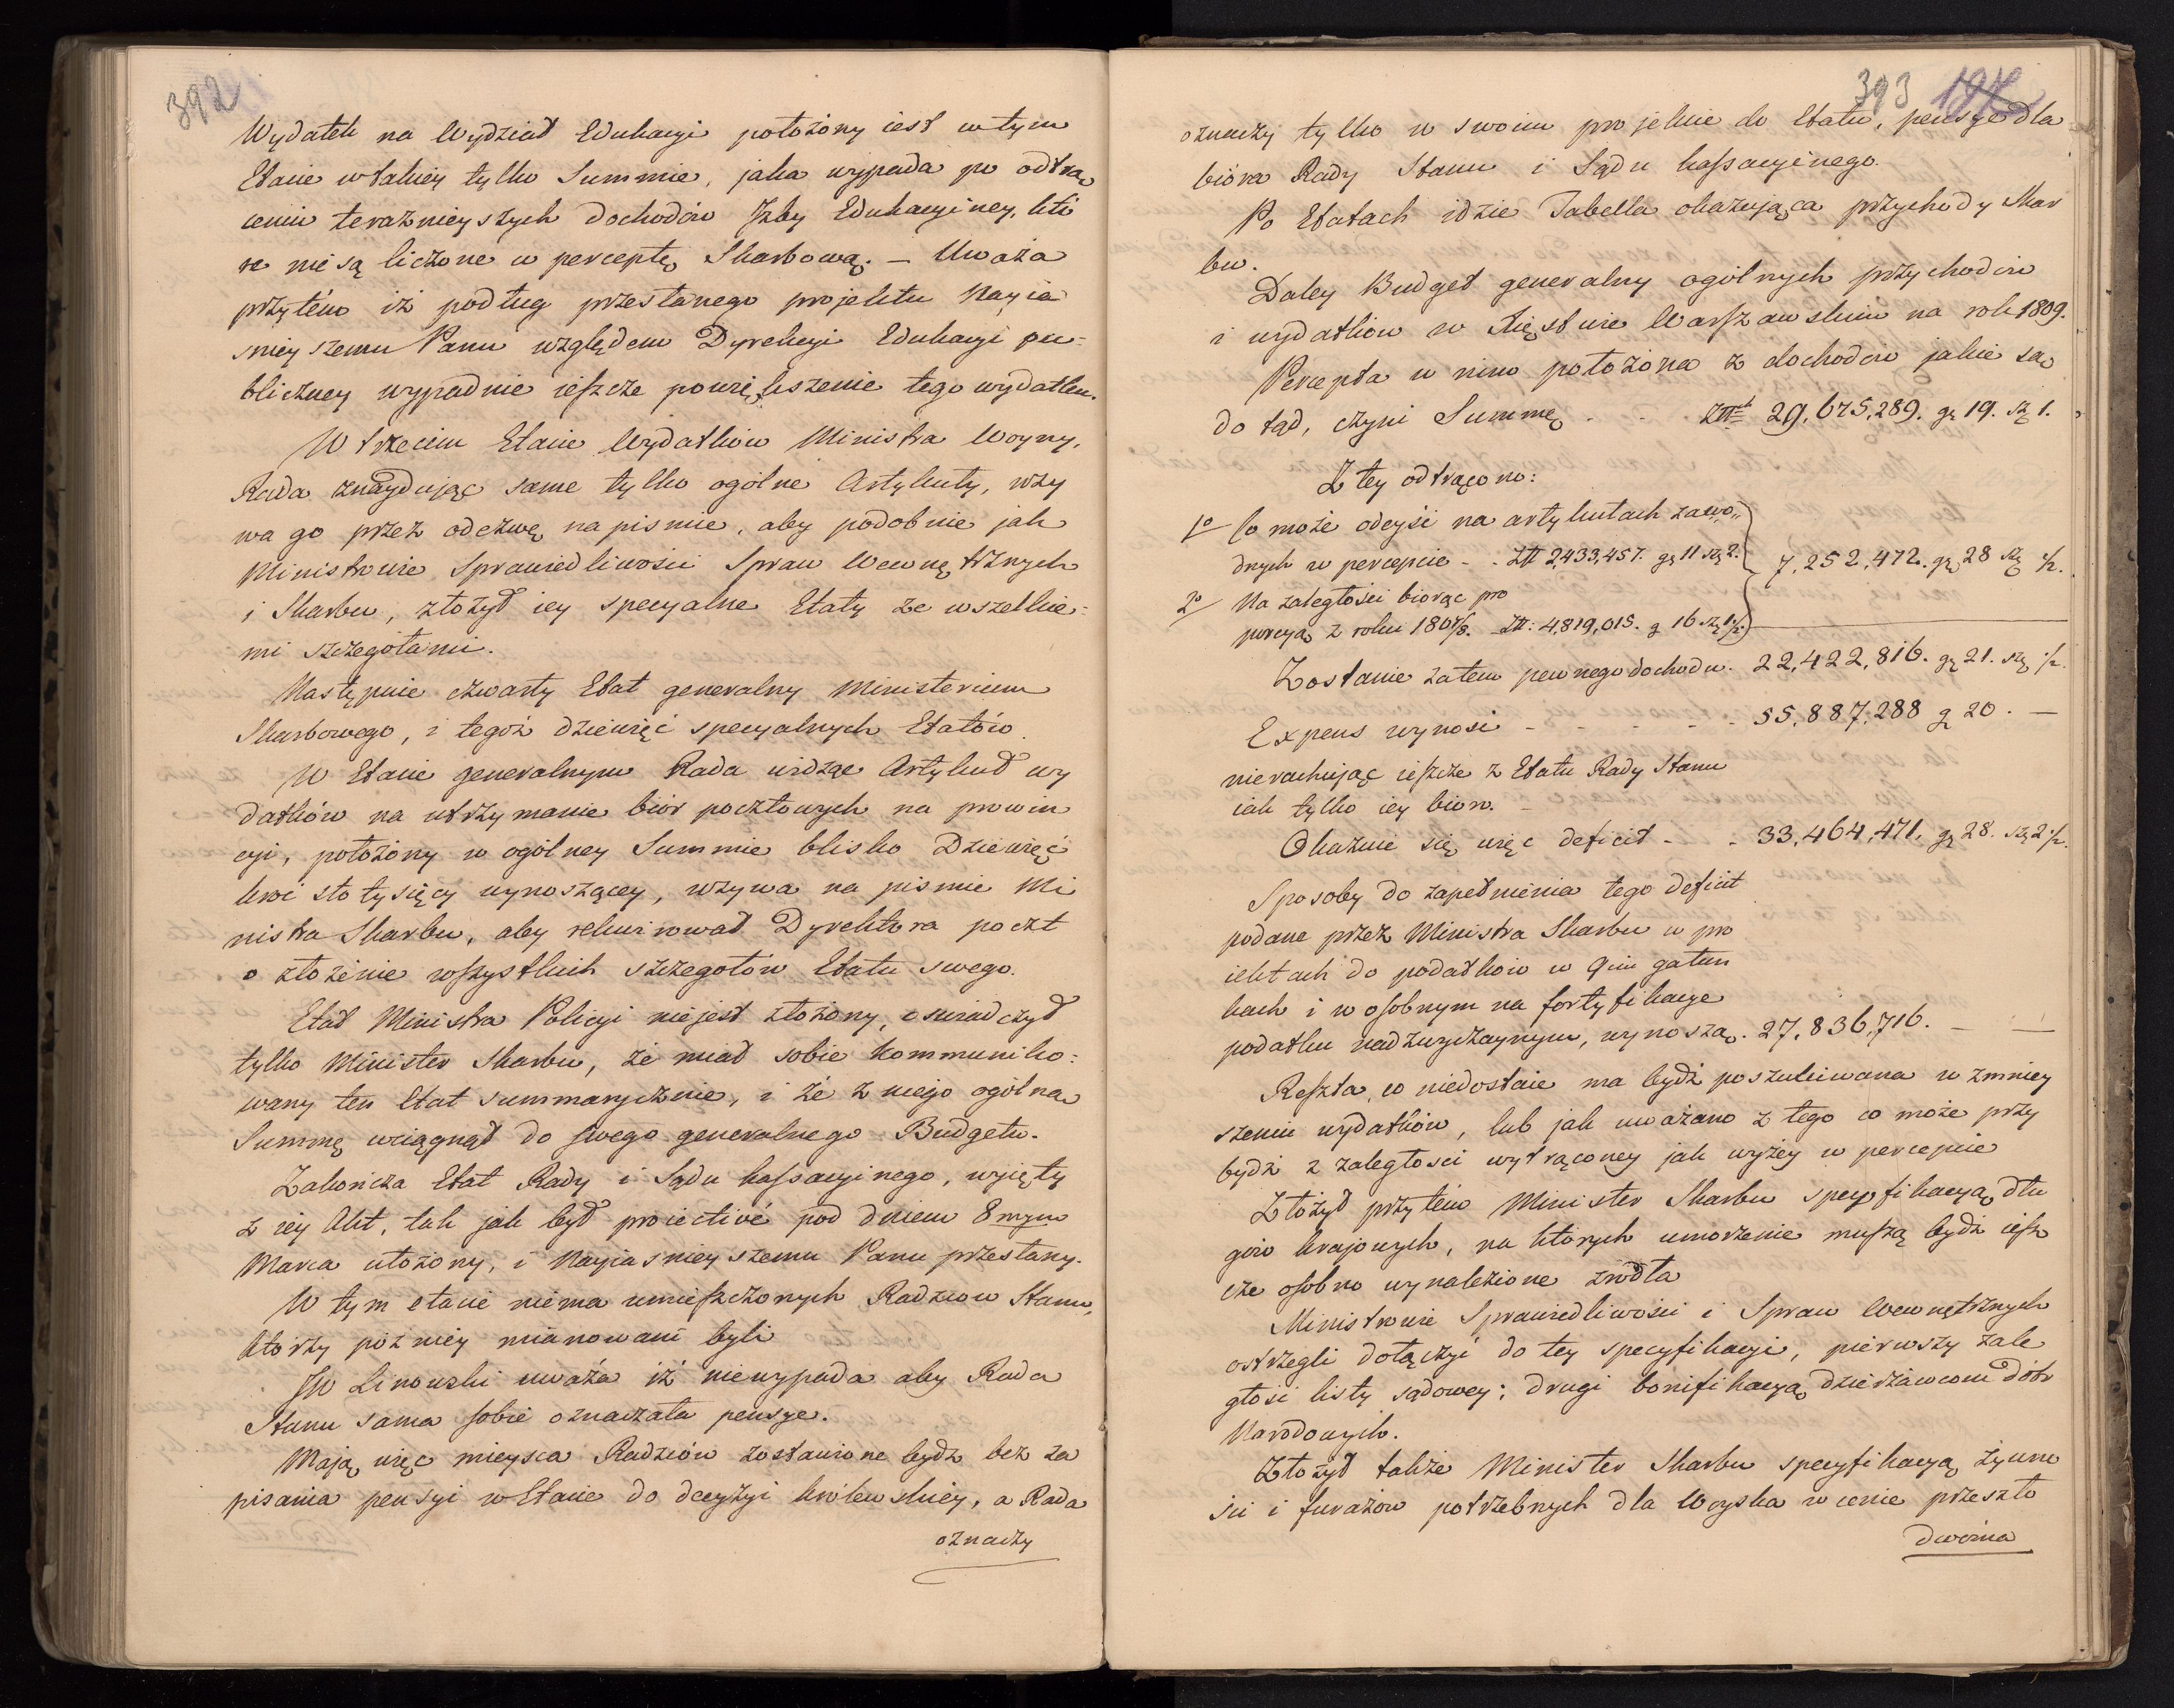 392
Wydatek na Wydział Edukacyi położony iest w tym
Etacie w takiey tylko Summie, jaka wypada po odtrą
ceniu teraznieyszych dochodów Izby Edukacyiney, któ
re nie są liczone w perceptę Skarbową. — Uważa
przytém iż podług przesłanego projektu Nayia
śnieyszemu Panu względem Dyrekcyi Edukacyi pu=
bliczney wypadnie ieszcze powiększenie tego wydatku.
W trzecim Etacie Wydatków Ministra Woyny,
Rada znayduiąc same tylko ogólne Artykuły, wzy
wa go przez odezwę na pismie, aby podobnie jak
Ministrowie Sprawiedliwości Spraw Wewnętrznych
i Skarbu, złożył iey specyalne Etaty ze wszelkie=
mi szczegółami.
Następuie czwarty Etat generalny Ministerium
Skarbowego, i tegoż dziewięć specyalnych Etatów.
W Etacie generalnym Rada widząc Artykuł wy
datków na utrzymanie biór pocztowych na prowin
cyi, położony w ogólney Summie blisko Dziewięć
kroć sto tysięcy wynoszącey, wzywa na pismie Mi
nistra Skarbu, aby rekwirował Dyrektora poczt
o złożenie wszystkich szczegółów Etatu swego.
Etat Ministra Policyi nie jest złożony, oświadczył
tylko Minister Skarbu, że miał sobie kommuniko=
wany ten Etat summarycznie, i że z niego ogólną
Summę wciągnął do swego generalnego Budgetu.
Zakończa Etat Rady i Sądu kassacyinego, wyięty
z iey Akt, tak jak był proiectivé pod dniem 8mym
Marca ułożony, i Nayiaśnieyszemu Panu przesłany.
W tym etacie niema umieszczonych Radzców Stanu,
którzy poźniey mianowani byli
JW Linowski uważa iż nie wypada aby Rada
Stanu sama sobie oznaczała pensye.
Mają więc mieysca Radzców zostawione bydź bez za
pisania pensyi w Etacie do decyzyi królewskiéy, a Rada
oznaczy
393
oznaczy tylko w swoim projekcie do Etatu, pensye dla
bióra Rady Stanu i Sądu kassacyinego.
Po Etatach idzie Tabella okazująca przychody Skar
bu.
Daley Budget generalny ogólnych przychodów
i wydatków w Xięstwie Warszawskim na rok 1809.
Percepta w nim położona z dochodów jakie są
do tąd, czyni Summę . . . Złł 29,675,289. gr 19. sz 1.
Z tey odtrącono:
1o Co może odeyść na artykułach zawo„
dnych w percepcie - . Złł 2,433,457. gr 11 sz 2. 7,252,472. gr 28 sz ½.
2o Na zaległości biorąc pro
porcyą z roku 1807/8. Złł: 4,819,015. g 16 sz 1½
Zostanie zatem pewnego dochodu. 22,422,816. gr 21. sz ½.
Expens wynosi - - - - - 55,887,288 g 20. —
nierachując ieszcze z Etatu Rady Stanu
iak tylko iey biór. -
Okazuie się więc deficit - . 33,464,471. gr 28. sz 2½.
Sposoby do zapełnienia tego deficit
podane przez Ministra Skarbu w pro
iektach do podatków w 9ciu gatun
kach i w osobnym na fortyfikacye
podatku nadzwyczaynym, wynoszą. 27,836,716. — —
Reszta, co niedostaie ma bydź poszukiwana w zmniey
szeniu wydatków, lub jak uważano z tego co może przy
bydź z zaległości wytrąconey jak wyżey w percepcie
Złożył przytém Minister Skarbu specyfikacyą dłu
gów krajowych, na których umorzenie muszą bydź iesz
cze osobno wynalezione zródła
Ministrowie Sprawiedliwości i Spraw Wewnętrznych
ostrzegli dołączyć do tey specyfikacyi, pierwszy zale
głość listy sądowey; drugi bonifikacyą dzierżawcom dóbr
Narodowych.
Złożył także Minister Skarbu specyfikacyą żywno
ści i furażów potrzebnych dla Woyska w cenie przeszło
dwóma